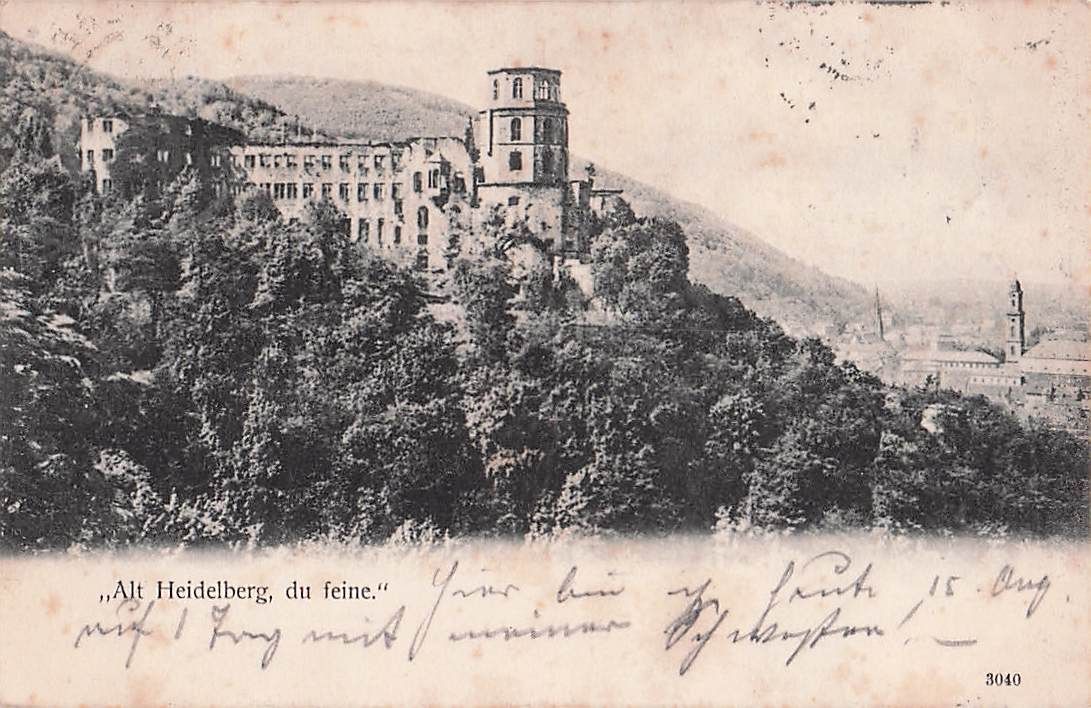 „Alt Heidelberg, du feine.“
Hier bin ich heute 15. Aug.
auf 1 Tag mit meiner Schwester!
3040